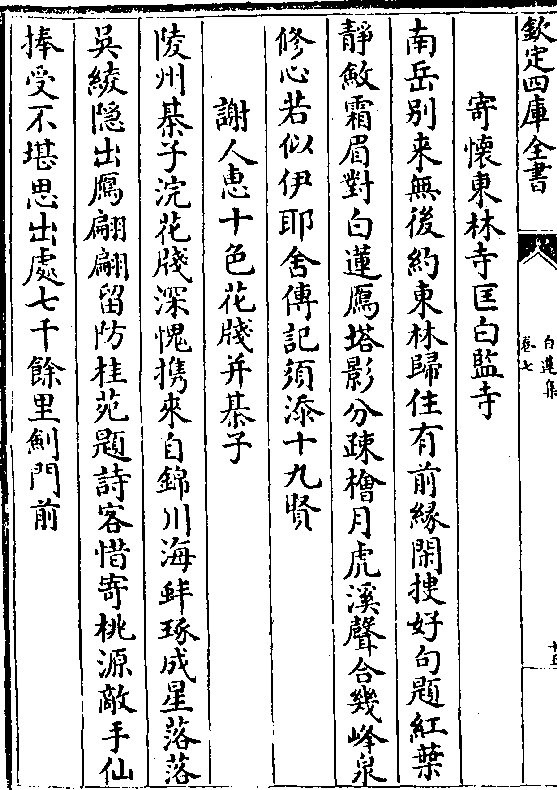 欽定四庫全書
白蓮集
卷七
寄懷東林寺匡白監寺
南岳别来無後約東林歸住有前縁閑搜好句題紅葉
静敛霜眉對白蓮鴈塔影分疎檜月虎溪聲合幾峰泉
修心若似伊耶舍傳記須添十九賢
謝人惠十色花牋并棊子
陵州棊子浣花牋深愧携來自錦川海蚌琢成星落落
吳綾隠出鴈翩翩留防桂苑題詩客惜寄桃源敵手仙
捧受不堪思出處七千餘里劍門前